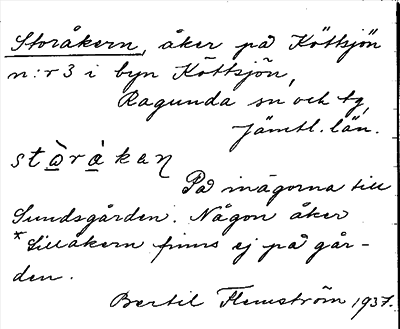 Storåkern, åker på Köttsjön
n:r 3 i byn Köttsjön,
Ragunda sn och tg,
Jämtl. län.
stà̱rá̱kaņ
På inägorna till
Sundsgården. Någon åker
*Lillåkern finns ej på går-
den.
Bertil Flemström 1937.